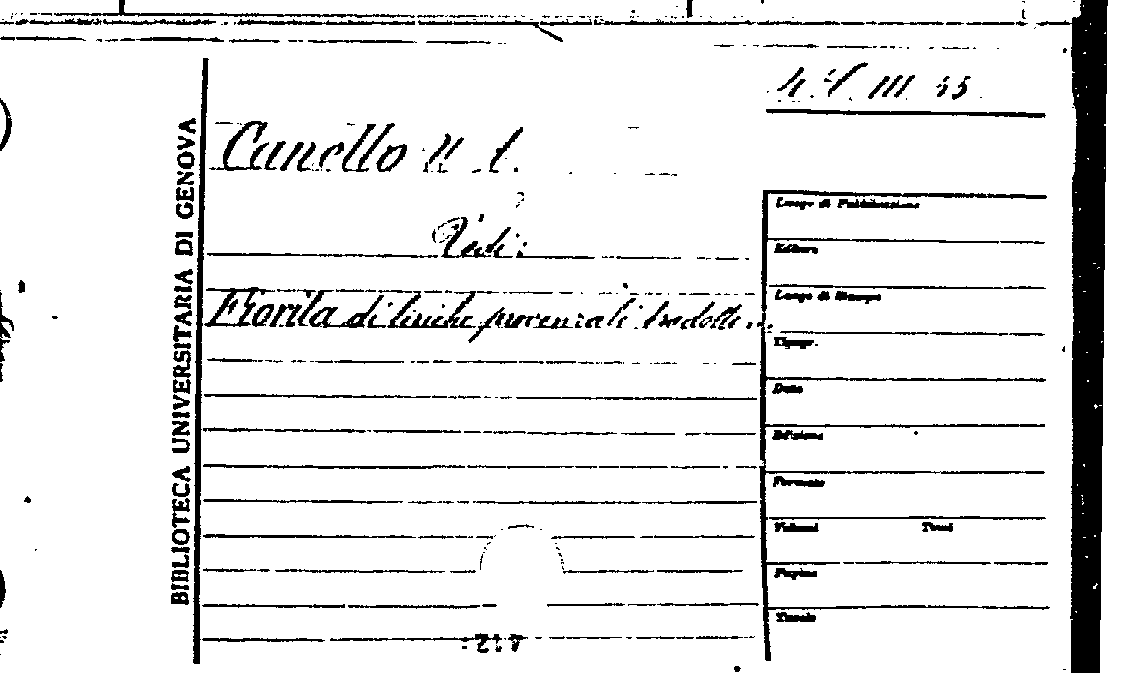 III 35
BIBLIOTECA UNIVERSITARIA DI GENOVA
Canello U. A.
Vedi:
Fiorita di liriche provenzali tradotte...
Luogo di Pubblicazione
Editore
Luogo di Stampa
Tipogr.
Data
Edizione
Formato
Volumi Tomi
Pagine
Tavole